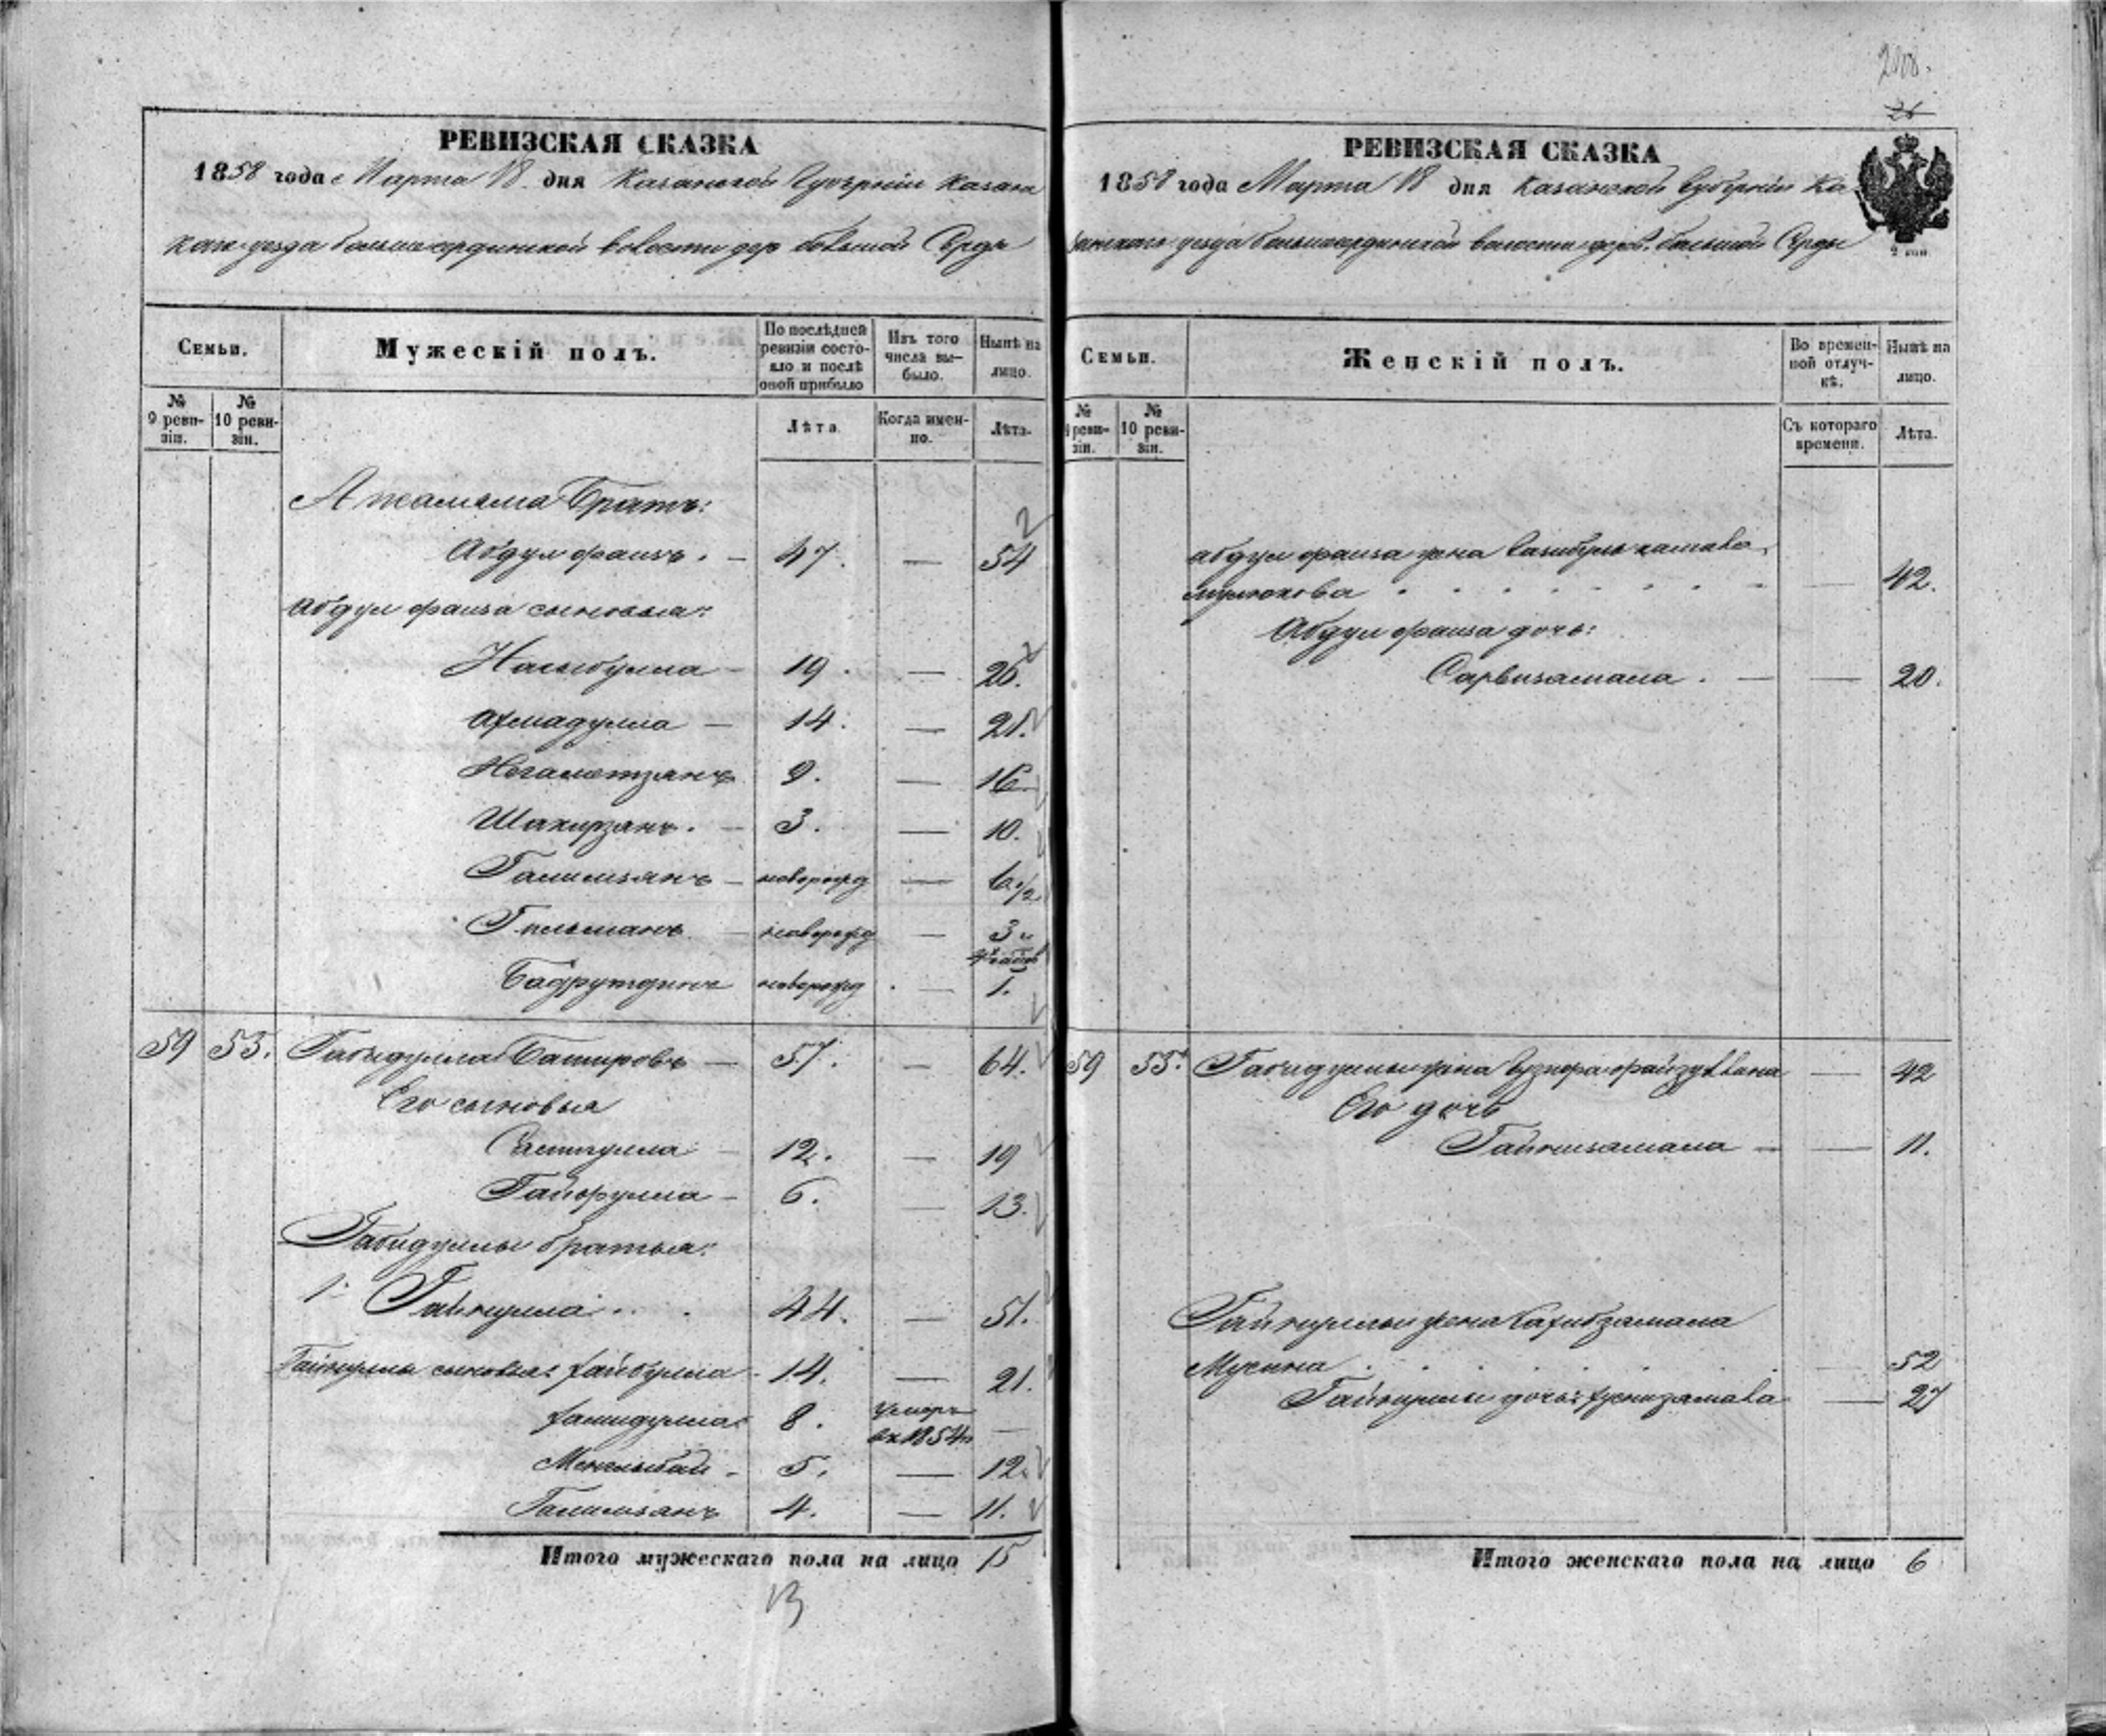 РЕВИЗСКАЯ СКАЗКА
1858 года Марта 18 дня Казанской Губернии Казан
скаго уезда большесердинской волости дер большой Серды
Семьи.
Мужескій полъ.
По послѣдней ревизіи состояло и послѣ оной прибыло
Изъ того числа выбыло.
Нынѣ на лицо.
№ 9 ревизіи.
№ 10 ревизіи.
Лѣта.
Когда именно.
Лѣта.
Братъ:
Абдул фаизъ. 47. — 54
Абдул фаиза сыновья:
Насыбулла 19. — 26.
Ахмадулла 14. — 21.
9. — 16
Шакирзянъ. 3. — 10.
Галимзянъ новорожд — 6 1/2
Гильманъ новорожд — 3
Бадрутдинъ новорожд — 1.
59 53. Габидулла Башировъ 57. — 64.
Его сыновья
12. — 19
Гайфулла 6. — 13.
Габидуллы братья:
1. Гайнулла 44. — 51.
Гайнуллы сыновья: Хайбулла 14. — 21.
Хамидулла 8. умеръ въ 1854 —
Менглыбай 5. — 12.
Галимзянъ 4. — 11.
Итого мужескаго пола на лицо 15
13
26
РЕВИЗСКАЯ СКАЗКА
1858 года Марта 18 дня Казанской Губернии Ка
занскаго уезда большесердинской волости дерев. большой Серды
2 коп.
Семьи.
Женскій полъ.
Во временной отлучкѣ.
Нынѣ на лицо.
№ 9 ревизіи.
№ 10 ревизіи.
Съ котораго времени.
Лѣта.
Абдул фаиза жена
— 42.
Абдул фаиза дочь:
Сарвизамала. — 20.
59 53. Габидуллы жена — 42
Его дочь
Гайнизамала — 11.
Гайнуллы жена
Мусина — 52
Гайнуллы дочь: Хуснизамала — 27
Итого женскаго пола на лицо 6